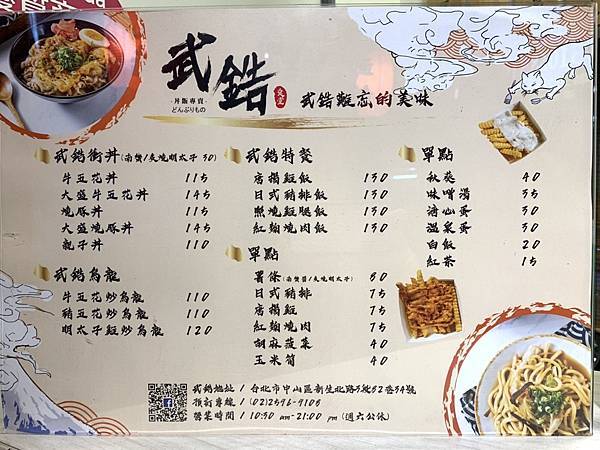 武鋯
·丼飯專賣·
どんぶりもの
武鋯難忘的美味
武鋯衝丼(南蠻/炙燒明太子 30)
牛五花丼 115
大盛牛五花丼 145
燒豚丼 115
大盛燒豚丼 145
親子丼 110
武鋯烏龍
牛五花炒烏龍 110
豬五花炒烏龍 110
明太子豬炒烏龍 120
武鋯特餐
唐揚雞飯 130
日式豬排飯 130
照燒雞腿飯 130
紅麴燒肉飯 130
單點
薯條(南蠻醬/炙燒明太子) 60
日式豬排 75
唐揚雞 75
紅麴燒肉 75
胡麻菠菜 40
玉米筍 40
單點
秋葵 40
味噌湯 35
溏心蛋 30
溫泉蛋 30
白飯 20
紅茶 15
武鋯地址 / 台北市中山區新生北路3段82巷34號
預訂專線 / (02)2596-9108
營業時間 / 10:30 am-21:00 pm (週六公休)